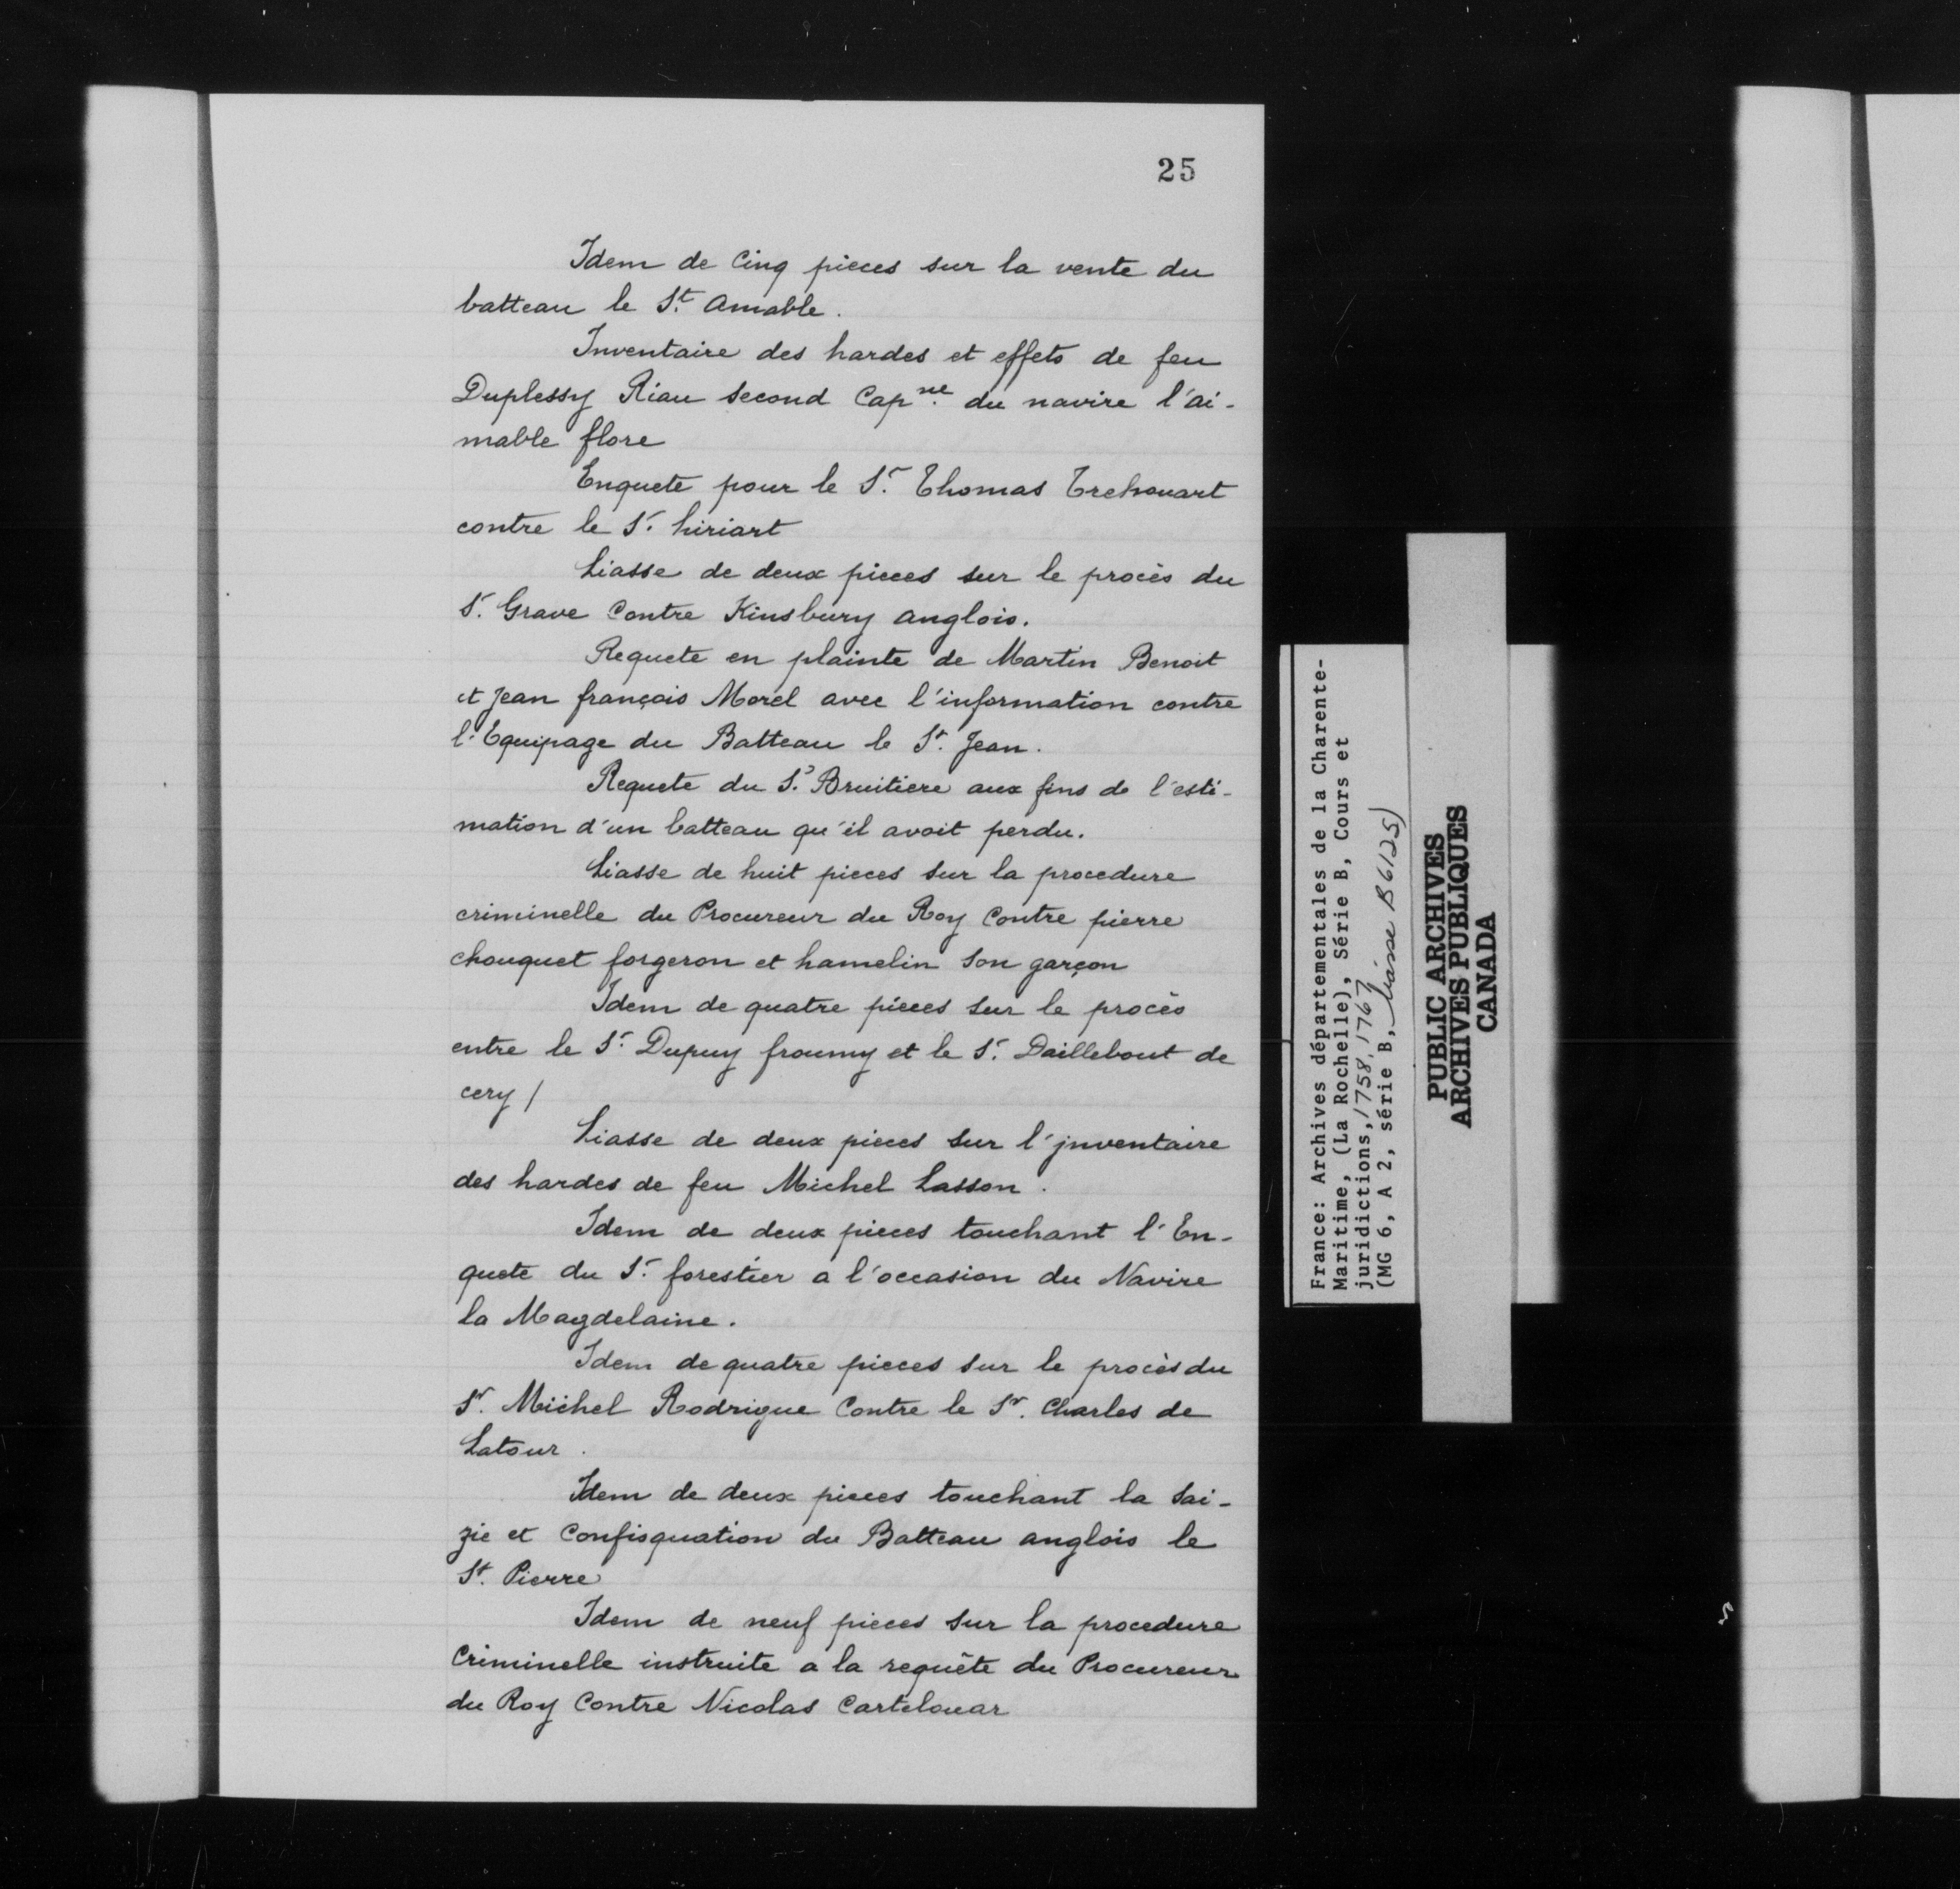 25
Idem de Cinq pieces sur la vente du
batteau le St. Amable.
Inventaire des hardes et effets de feu
Duplessy Riau second Capne. du navire l'ai-
mable flore
Enquete pour le Sr. Thomas Trehouart
contre le Sr. hiriart
Liasse de deux pieces sur le procès du
Sr. Grave Contre Kinsbury anglois.
Requete en plainte de Martin Benoit
et Jean françois Morel avec l'information contre
l'Equipage du Batteau le St. Jean.
Requete du Sr. Bruitiere aux fins de l'esti-
mation d'un batteau qu'il avoit perdu.
Liasse de huit pieces sur la procedure
criminelle du Procureur du Roy Contre pierre
chouquet forgeron et hamelin son garçon
Idem de quatre pieces sur le procès
entre le Sr. Dupuy froumy et le Sr. Daillebout de
cery /
Liasse de deux pieces sur l'jnventaire
des hardes de feu Michel Lasson.
Idem de deux pieces touchant l'En-
quete du Sr. forestier a l'occasion du Navire
la Magdelaine.
Idem de quatre pieces sur le procès du
Sr. Michel Rodrigue Contre le Sr. Charles de
Latour.
Idem de deux pieces touchant la Sai-
zie et Confisquation du Batteau anglois le
St. Pierre
Idem de neuf pieces sur la procedure
Criminelle instruite a la requête du Procureur
du Roy Contre Nicolas Cartelouar
France: Archives départementales de la Charente-
Maritime, (La Rochelle), Série B, Cours et
juridictions, 1758, 1767
(MG 6, A 2, série B, liasse B6125)
PUBLIC ARCHIVES
ARCHIVES PUBLIQUES
CANADA